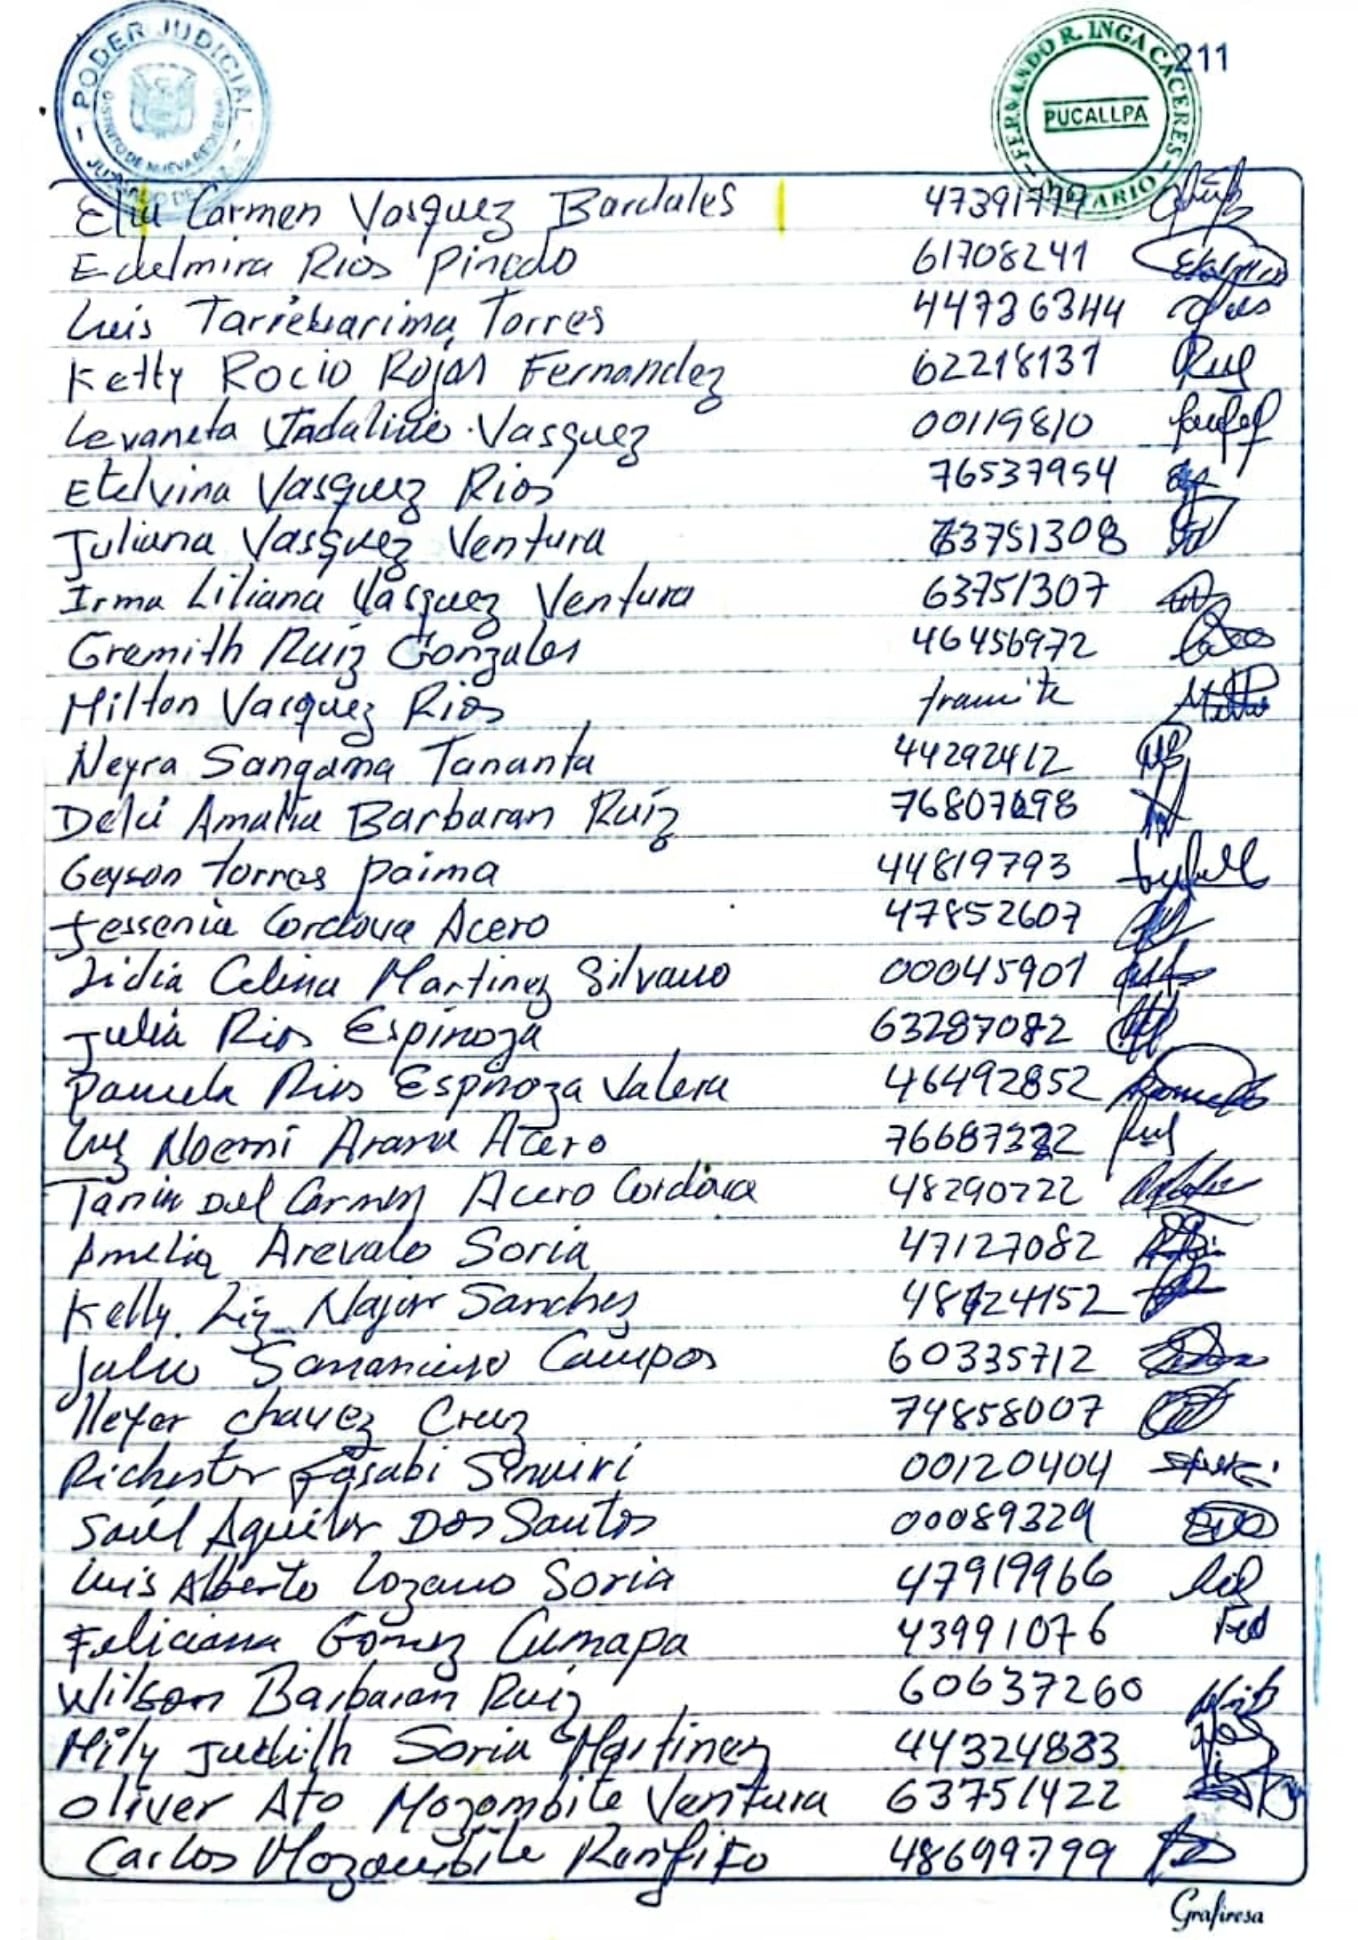 PODER JUDICIAL
DISTRITO DE NUEVA REQUENA
FERNANDO R. INGA CACERES
PUCALLPA
NOTARIO
211
Carmen Vasquez Bardales
Edelmira Rios Pinedo 61708241
Luis Torres 44736344
Ketty Rocio Rojas Fernandez 62218131
Levaneta Vasquez 00119810
Etelvina Vasquez Rios 76537954
Juliana Vasquez Ventura 63751308
Irma Liliana Vasquez Ventura 63751307
Gremith Ruiz Gonzales 46456972
Milton Vasquez Rios tramite
Neyra Sangama Tananta 44292412
Delci Amalia Barbaran Ruiz
Geyson torres paima 44819793
Jessenia Cordova Acero 47852607
Lidia Celina Martinez Silvano 00045901
Julia Rios Espinoza 63287082
Pamela Rios Espinoza Valera 46492852
Luz Noemi Arana Acero
Tania Del Carmen Acero Cordova 48290722
Amelia Arevalo Soria 47127082
Kelly Liz Najar Sanchez
Julio Campos 60335712
chavez Cruz 74858007
Richester Fasabi Sinuiri 00120404
Saúl Aguilar Dos Santos 00089329
Luis Alberto Lozano Soria 47919966
Feliciana Gomez Cumapa 43991076
Wilson Barbaran Ruiz 60637260
Mily Judith Soria Martinez 44324883
Oliver Ato Mozombite Ventura 63751422
Carlos Mozombite Renfifo 48699799
Grafiresa